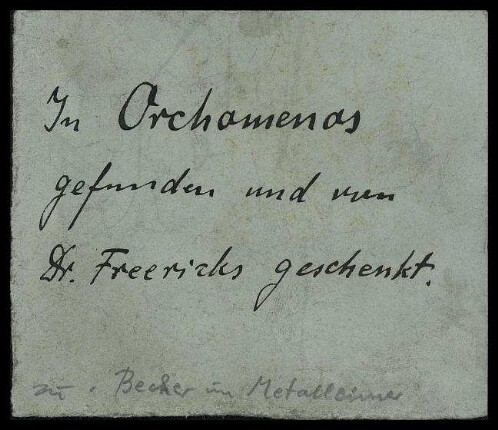 In Orchomenos
gefunden und von
Dr. Freericks geschenkt.
zu . Becher im Metalleimer